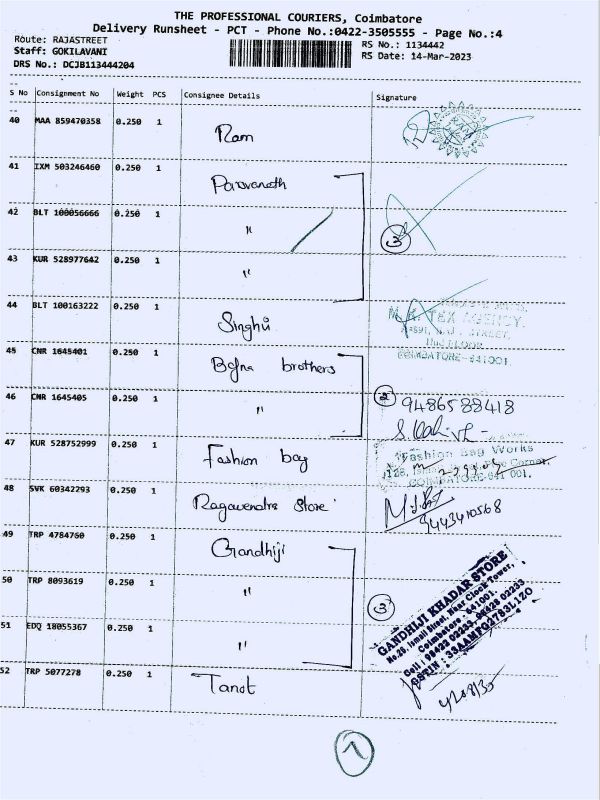 THE PROFESSIONAL COURIERS, Coimbatore
Delivery Runsheet - PCT - Phone No.:0422-3505555 - Page No.:4
Route: RAJASTREET
RS No.: 1134442
Staff: GOKILAVANI
RS Date: 14-Mar-2023
DRS No.: DCJB113444204
S No Consignment No Weight PCS Consignee Details Signature
40 MAA 859470358 0.250 1 Ram
41 IXM 503246460 0.250 1 Parsvanath
42 BLT 100056666 0.250 1 " 3
43 KUR 528977642 0.250 1 "
44 BLT 100163222 0.250 1 Singhvi
TEX AGENCY,
STREET,
COIMBATORE-641001.
45 CNR 1645401 0.250 1 Bafna brothers
46 CNR 1645405 0.250 1 " 2 9486588418
47 KUR 528752999 0.250 1 Fashion bag
Fashion Bag Works
Corner,
COIMBATORE-641 001.
48 SVK 60342293 0.250 1 Ragavendra Store
9443410568
49 TRP 4784760 0.250 1 Gandhiji
50 TRP 8093619 0.250 1 " 3
GANDHIJI KHADAR STORE
No.26, Ismail Street, Near Clock Tower,
Coimbatore - 641001.
Cell : 98422 02233, 98428 02233
GSTIN : 33AAMFG2783L1ZO
51 EDQ 18055367 0.250 1 "
52 TRP 5077278 0.250 1 Tanot